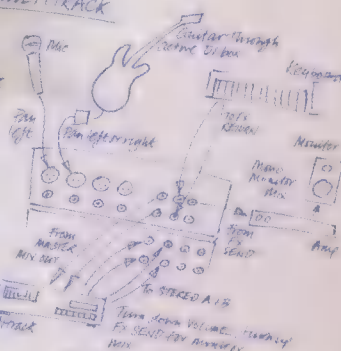 MULTITRACK
Guitar through
active DI box
Mic
Keyboard
Pan
left
Pan left or right
To FX
RETURN
Monitor
Mono
Monitor
Mix
From
FX
SEND
Amp
From
MASTER
MIX OUT
To STEREO A / B
Turn down volume
FX SEND for monitor
mix